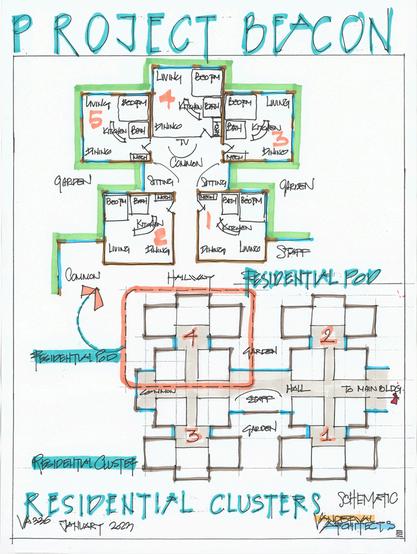 PROJECT BEACON
LIVING BEDRM
4
KITCHEN BATH
DINING
LIVING BEDRM
5
KITCHEN BATH
DINING
MECH
BEDRM LIVING
3
BATH KITCHEN
DINING
MECH
TV
COMMON
SITTING SITTING
GARDEN GARDEN
BEDRM BATH MECH
KITCHEN
2
LIVING DINING
MECH BATH BEDRM
1
KITCHEN
DINING LIVING
STAFF
COMMON
HALLWAY
RESIDENTIAL POD
4
2
GARDEN
RESIDENTIAL POD
COMMON STAFF HALL TO MAIN BLDG.
GARDEN
3
1
RESIDENTIAL CLUSTER
RESIDENTIAL CLUSTERS SCHEMATIC
JANUARY
ARCHITECTS